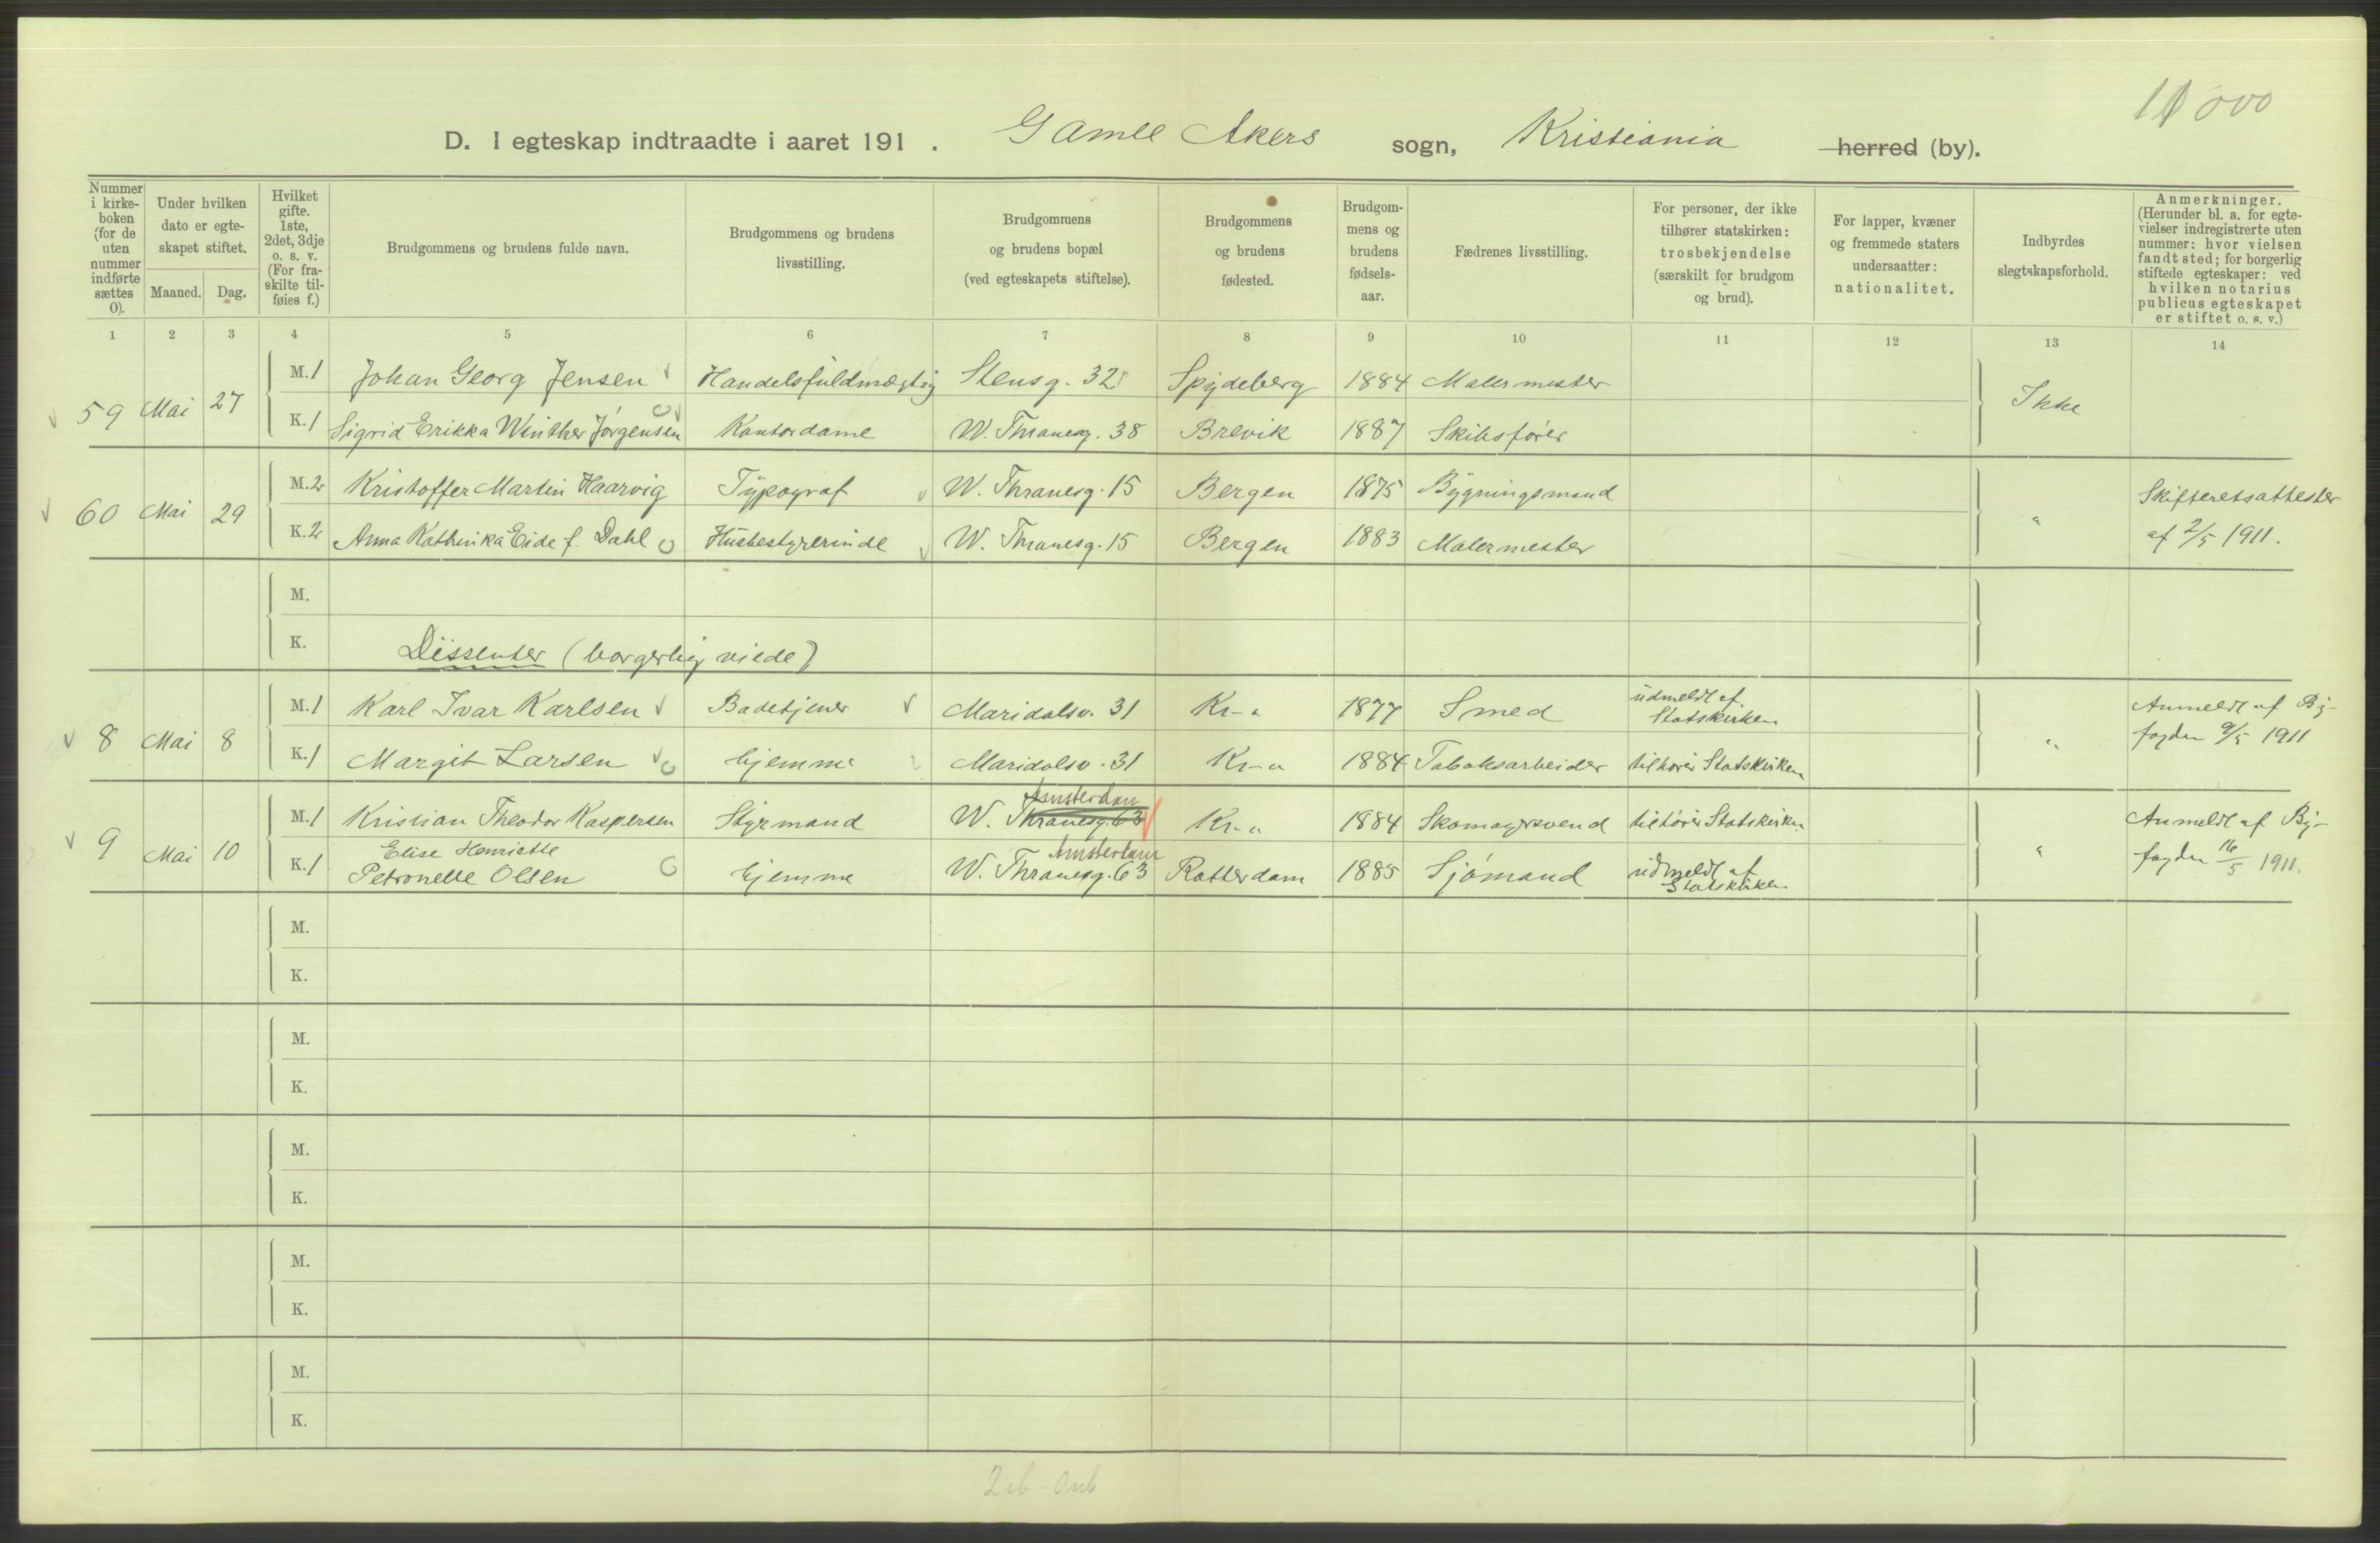 11000
D. I egteskap indtraadte i aaret 191 . Gamle Akers sogn, Kristiania herred (by).
Nummer i kirke-boken (for de uten nummer indførte sættes 0).
Under hvilken dato er egte-skapet stiftet.
Maaned. Dag.
Hvilket gifte. 1ste, 2det, 3dje o. s. v. (For fra-skilte til-føies f.)
Brudgommens og brudens fulde navn.
Brudgommens og brudens livsstilling.
Brudgommens og brudens bopæl (ved egteskapets stiftelse).
Brudgommens og brudens fødested.
Brudgom-mens og brudens fødsels-aar.
Fædrenes livsstilling.
For personer, der ikke tilhører statskirken: trosbekjendelse (særskilt for brudgom og brud).
For lapper, kvæner og fremmede staters undersaatter: nationalitet.
Indbyrdes slegtskapsforhold.
Anmerkninger. (Herunder bl. a. for egte-vielser indregistrerte uten nummer: hvor vielsen fandt sted; for borgerlig stiftede egteskaper: ved hvilken notarius publicus egteskapet er stiftet o. s. v.)
1 2 3 4 5 6 7 8 9 10 11 12 13 14
59 Mai 27 M. 1 Johan Georg Jensen Handelsfuldmægtig Stensg. 32 Spydeberg 1884 Malermester Ikke
K. 1 Sigrid Erikka Winther Jørgensen Kontordame W. Thranesg. 38 Brevik 1887 Skibsfører
60 Mai 29 M. 2 Kristoffer Martin Haarvig Typograf W. Thranesg. 15 Bergen 1875 Bygningsmand " Skifteretsattester
K. 2 Anna Kathinka Eide f. Dahl Husbestyrerinde W. Thranesg. 15 Bergen 1883 Malermester af 2/5 1911.
M.
K. Dissenter (borgerlig viede)
8 Mai 8 M. 1 Karl Ivar Karlsen Badetjener Maridalsv. 31 Kr-a 1877 Smed udmeldt af Statskirken " Anmeldt af By-
K. 1 Margit Larsen hjemme Maridalsv. 31 Kr-a 1884 Tobaksarbeider tilhører Statskirken fogden 9/5 1911
9 Mai 10 M. 1 Kristian Theodor Kaspersen Styrmand W. Thranesg. 63 Amsterdam Kr-a 1884 Skomagersvend tilhører Statskirken " Anmeldt af By-
K. 1 Elise Henriette Petronelle Olsen hjemme W. Thranesg. 63 Amsterdam Rotterdam 1885 Sjømand udmeldt af Statskirken fogden 16/5 1911.
M.
K.
M.
K.
M.
K.
M.
K.
M.
K.